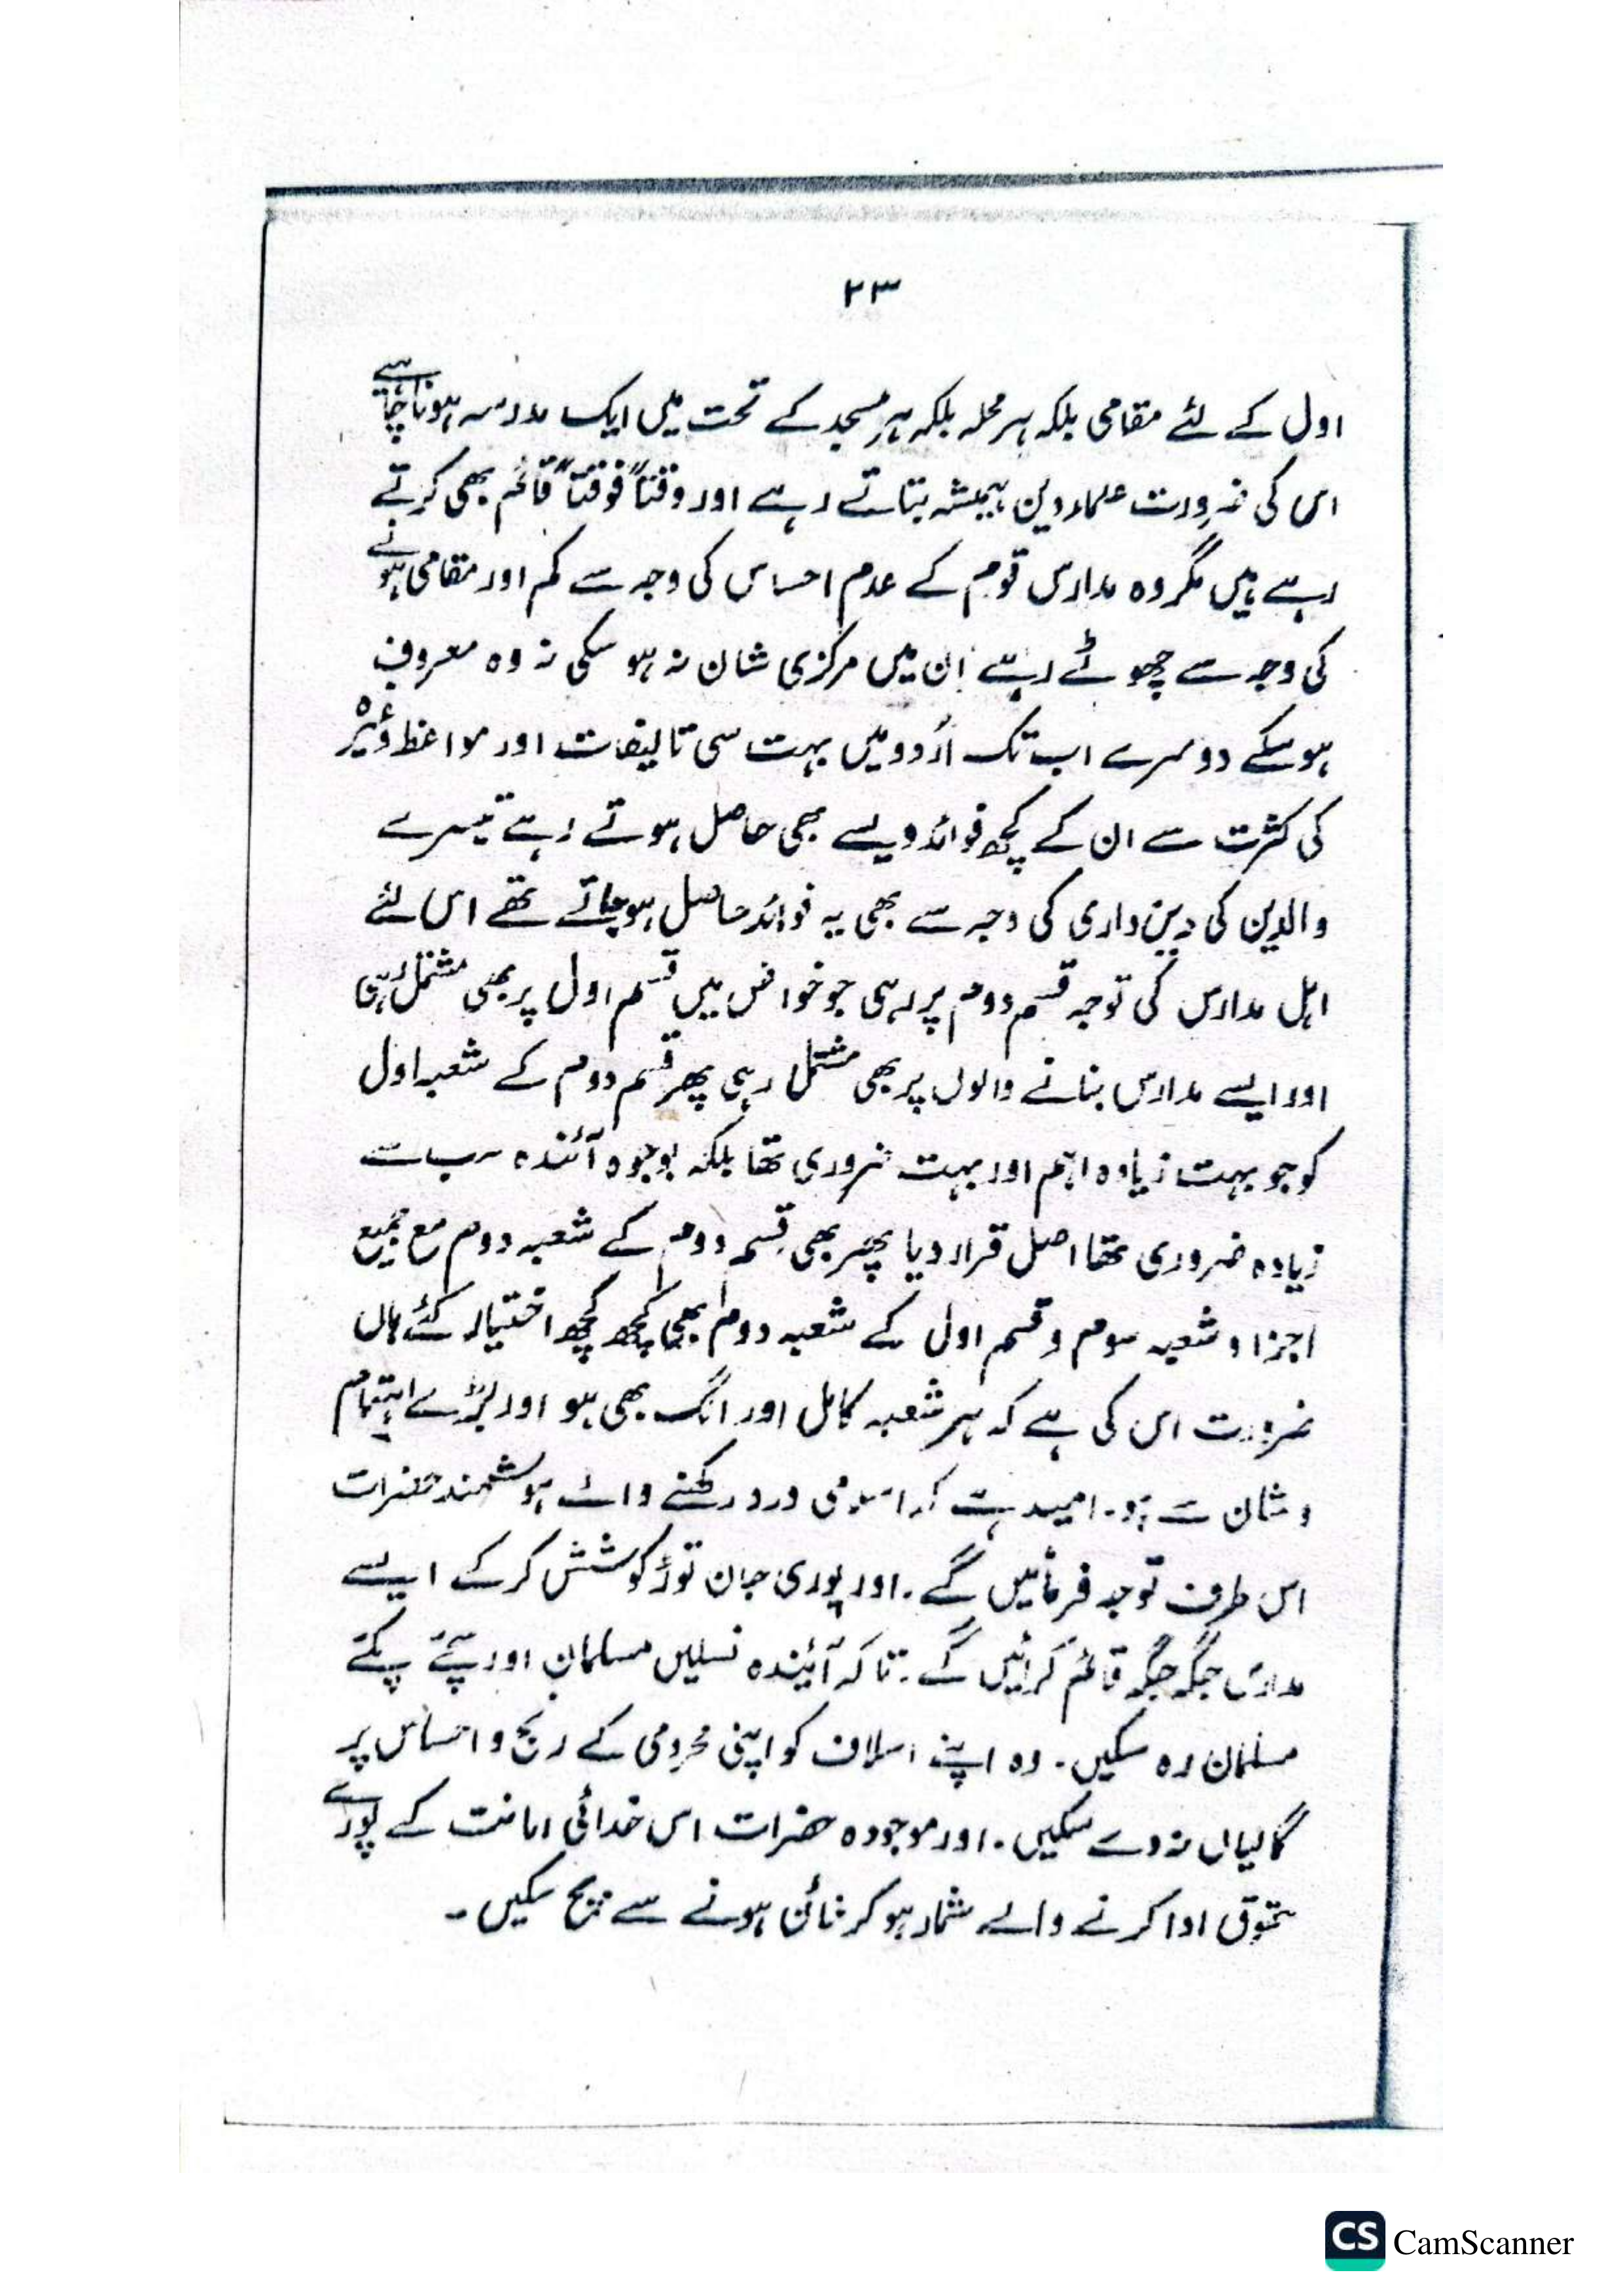 ۲۳
اول کے لئے مقامی بلکہ ہر محلہ بلکہ ہر مسجد کے تحت میں ایک مدرسہ ہونا چاہئے
اس کی ضرورت علماء دین ہمیشہ بتاتے رہے اور وقتاً فوقتاً قائم بھی کرتے
رہے ہیں مگر وہ مدارس قوم کے عدم احساس کی وجہ سے کم اور مقامی ہونے
کی وجہ سے چھوٹے رہے ان میں مرکزی شان نہ ہو سکی نہ وہ معروف
ہو سکے دوسرے اب تک اُردو میں بہت سی تالیفات اور مواعظ وغیرہ
کی کثرت سے ان کے کچھ فوائد ویسے بھی حاصل ہوتے رہے تیسرے
والدین کی دین داری کی وجہ سے بھی یہ فوائد حاصل ہو جاتے تھے اس لئے
اہل مدارس کی توجہ قسم دوم پر رہی جو خواص میں قسم اول پر بھی مشتمل رہی
اور ایسے مدارس بنانے والوں پر بھی مشتمل رہی پھر قسم دوم کے شعبہ اول
کو جو بہت زیادہ اہم اور بہت ضروری تھا بلکہ بوجوہ آئندہ سب سے
زیادہ ضروری تھا اصل قرار دیا پھر بھی قسم دوم کے شعبہ دوم مع جمیع
اجزا و شعبہ سوم و قسم اول کے شعبہ دوم بھی کچھ کچھ اختیار کئے ہاں
ضرورت اس کی ہے کہ ہر شعبہ کامل اور الگ بھی ہو اور بڑے اہتمام
و شان سے ہو۔ امید ہے کہ اسلامی درد رکھنے والے ہوشمند حضرات
اس طرف توجہ فرمائیں گے۔ اور پوری جان توڑ کوشش کر کے ایسے
مدارس جگہ جگہ قائم کرائیں گے۔ تاکہ آئیندہ نسلیں مسلمان اور سچے پکے
مسلمان رہ سکیں۔ وہ اپنے اسلاف کو اپنی محرومی کے رنج و احساس پر
گالیاں نہ دے سکیں۔ اور موجودہ حضرات اس خدائی امانت کے پورے
حقوق ادا کرنے والے شمار ہو کر خائن ہونے سے بچ سکیں۔
CS CamScanner